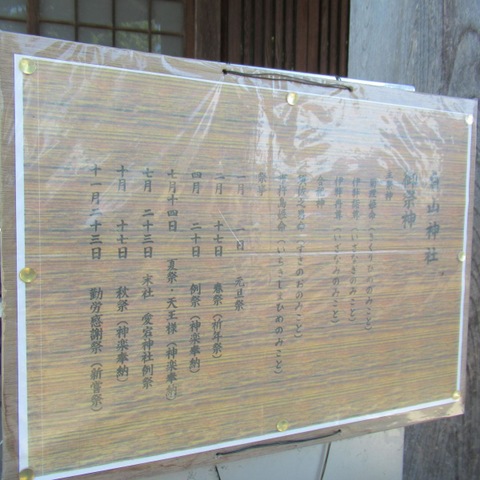 白山神社
御祭神
主祭神
菊理姫命（きくりひめのみこと）
伊弉諾尊（いざなぎのみこと）
伊弉冉尊（いざなみのみこと）
合祀神
須佐之男命（すさのおのみこと）
市杵島姫命（いちきしまひめのみこと）
祭事
一月 一日 元旦祭
二月 十七日 春祭（祈年祭）
四月 二十日 例祭（神楽奉納）
七月十四日 夏祭・天王様（神楽奉納）
七月 二十三日 末社 愛宕神社例祭
十月 十七日 秋祭（神楽奉納）
十一月二十三日 勤労感謝祭（新嘗祭）